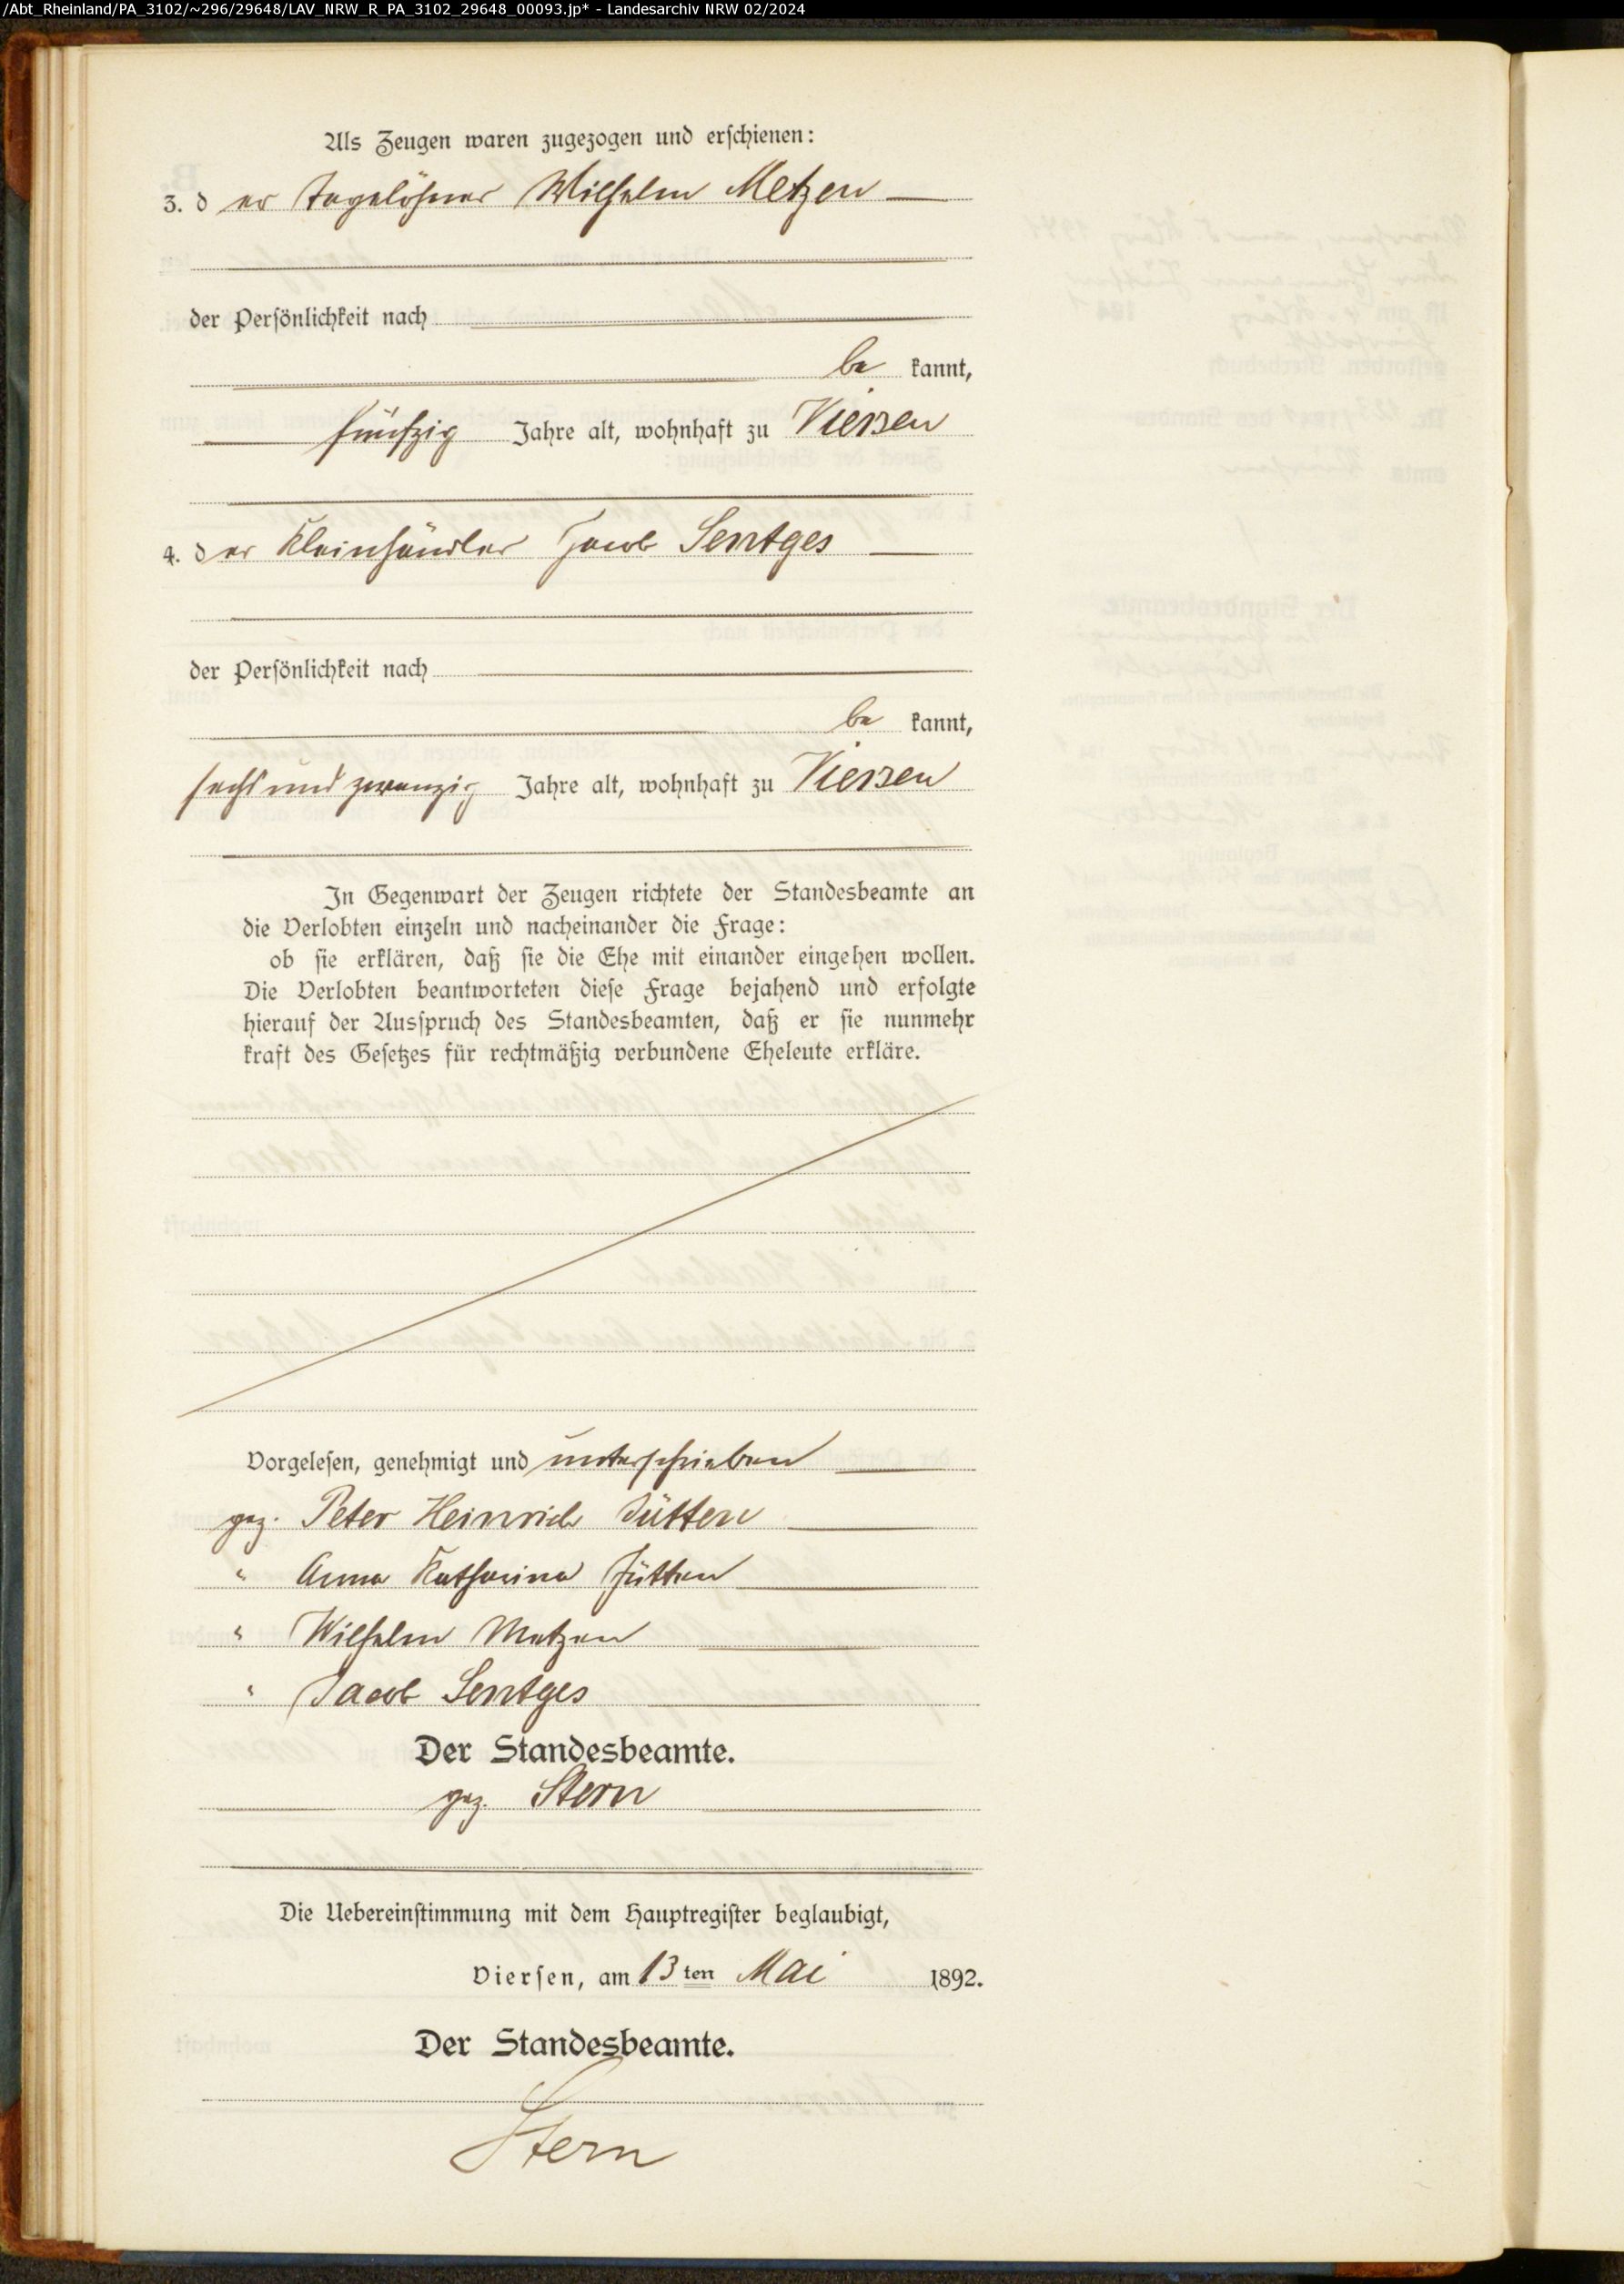 /Abt_Rheinland/PA_3102/~296/29648/LAV_NRW_R_PA_3102_29648_00093.jp* - Landesarchiv NRW 02/2024
Als Zeugen waren zugezogen und erschienen:
3. der Tagelöhner Wilhelm Metzen
der Persönlichkeit nach
be kannt,
fünfzig Jahre alt, wohnhaft zu Viersen
4. der Kleinhändler Jacob Sentges
der Persönlichkeit nach
be kannt,
sechs und zwanzig Jahre alt, wohnhaft zu Viersen
In Gegenwart der Zeugen richtete der Standesbeamte an
die Verlobten einzeln und nacheinander die Frage:
ob sie erklären, daß sie die Ehe mit einander eingehen wollen.
Die Verlobten beantworteten diese Frage bejahend und erfolgte
hierauf der Ausspruch des Standesbeamten, daß er sie nunmehr
kraft des Gesetzes für rechtmäßig verbundene Eheleute erkläre.
Vorgelesen, genehmigt und unterschrieben
gez. Peter Heinrich Jütten
" Anna Katharina Jütten
" Wilhelm Metzen
" Jacob Sentges
Der Standesbeamte.
gez. Stern
Die Uebereinstimmung mit dem Hauptregister beglaubigt,
Viersen, am 13 ten Mai 1892.
Der Standesbeamte.
Stern